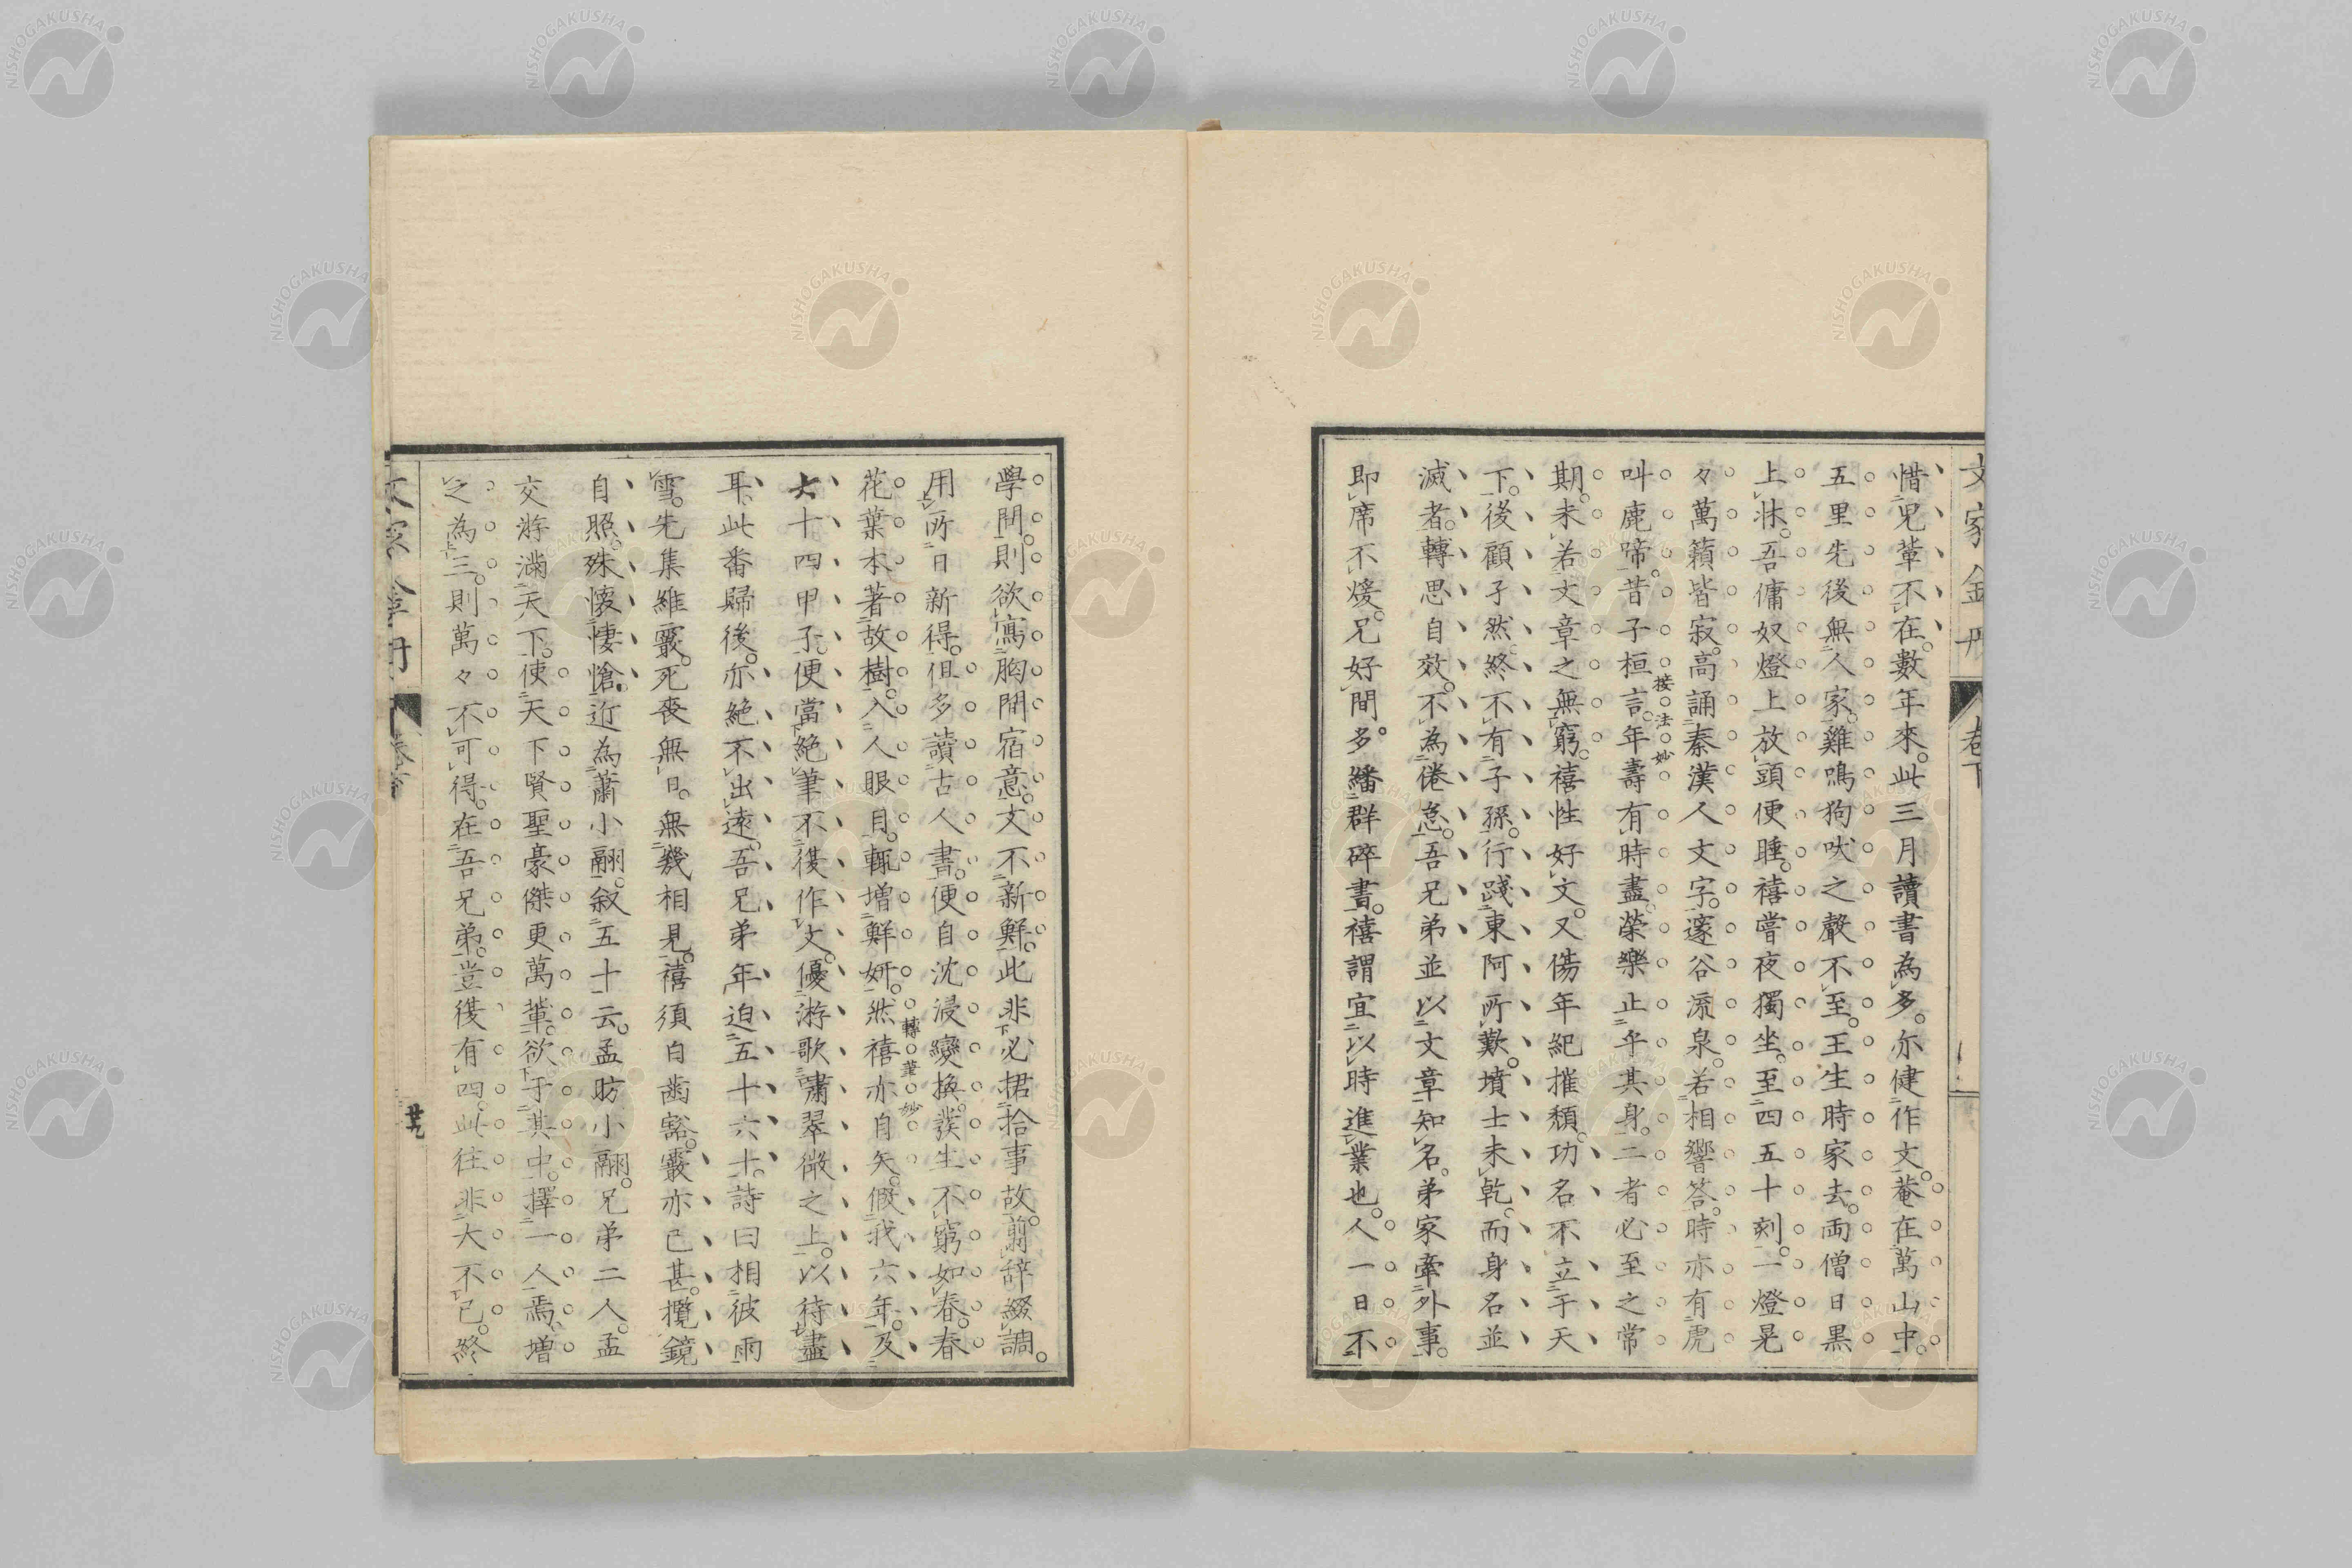 文家金丹
卷下
惜兒輩不在。數年來。此三月讀書為多。亦健作文。菴在萬山中。
五里先後無人家。雞鳴狗吠之聲不至。王生時家去。兩僧日黒
上牀。吾傭奴燈上放頭便睡。禧嘗夜獨坐。至四五十刻。一燈晃
々萬籟皆寂。高誦秦漢人文字。邃谷流泉。若相響答。時亦有虎
叫鹿啼。昔子桓言。年壽有時盡。榮樂止乎其身。二者必至之常
接法妙
期。未若文章之無窮。禧性好文。又傷年紀摧頽。功名不立于天
下。後顧孑然。終不有子孫。行踐東阿所歎。墳土未乾。而身名並
滅者。轉思自效。不為倦怠。吾兄弟並以文章知名。弟家牽外事。
即席不煖。兄好間多。繙群碎書。禧謂宜以時進業也。人一日不
學問。則欲寓胸間宿意。文不新鮮。此非必捃拾事故。剪辭綴調。
用所日新得。但多讀古人書。便自沈浸變換。發生不窮。如春。春
花葉本著故樹。入人眼目。輒增鮮妍。然禧亦自矢。假我六年。及
轉筆妙
大十四甲子。便當絕筆。不復作文。優游歌嘯翠微之上。以待盡
耳。此番歸後。亦絕不出遠。吾兄弟年迫五十六十。詩曰相彼雨
雪。先集維霰。死喪無日。無幾相見。禧須白齒豁。霰亦已甚。攬鏡
自照。殊懷悽愴。近為蕭小翮。叙五十云。孟昉小翮。兄弟二人。孟
交游滿天下。使天下賢聖豪傑更萬輩。欲于其中。擇一人焉。增
之為三。則萬々不可得。在吾兄弟。豈復有四。此往非大不已。終
文家金丹
廿九
NISHOGAKUSHA